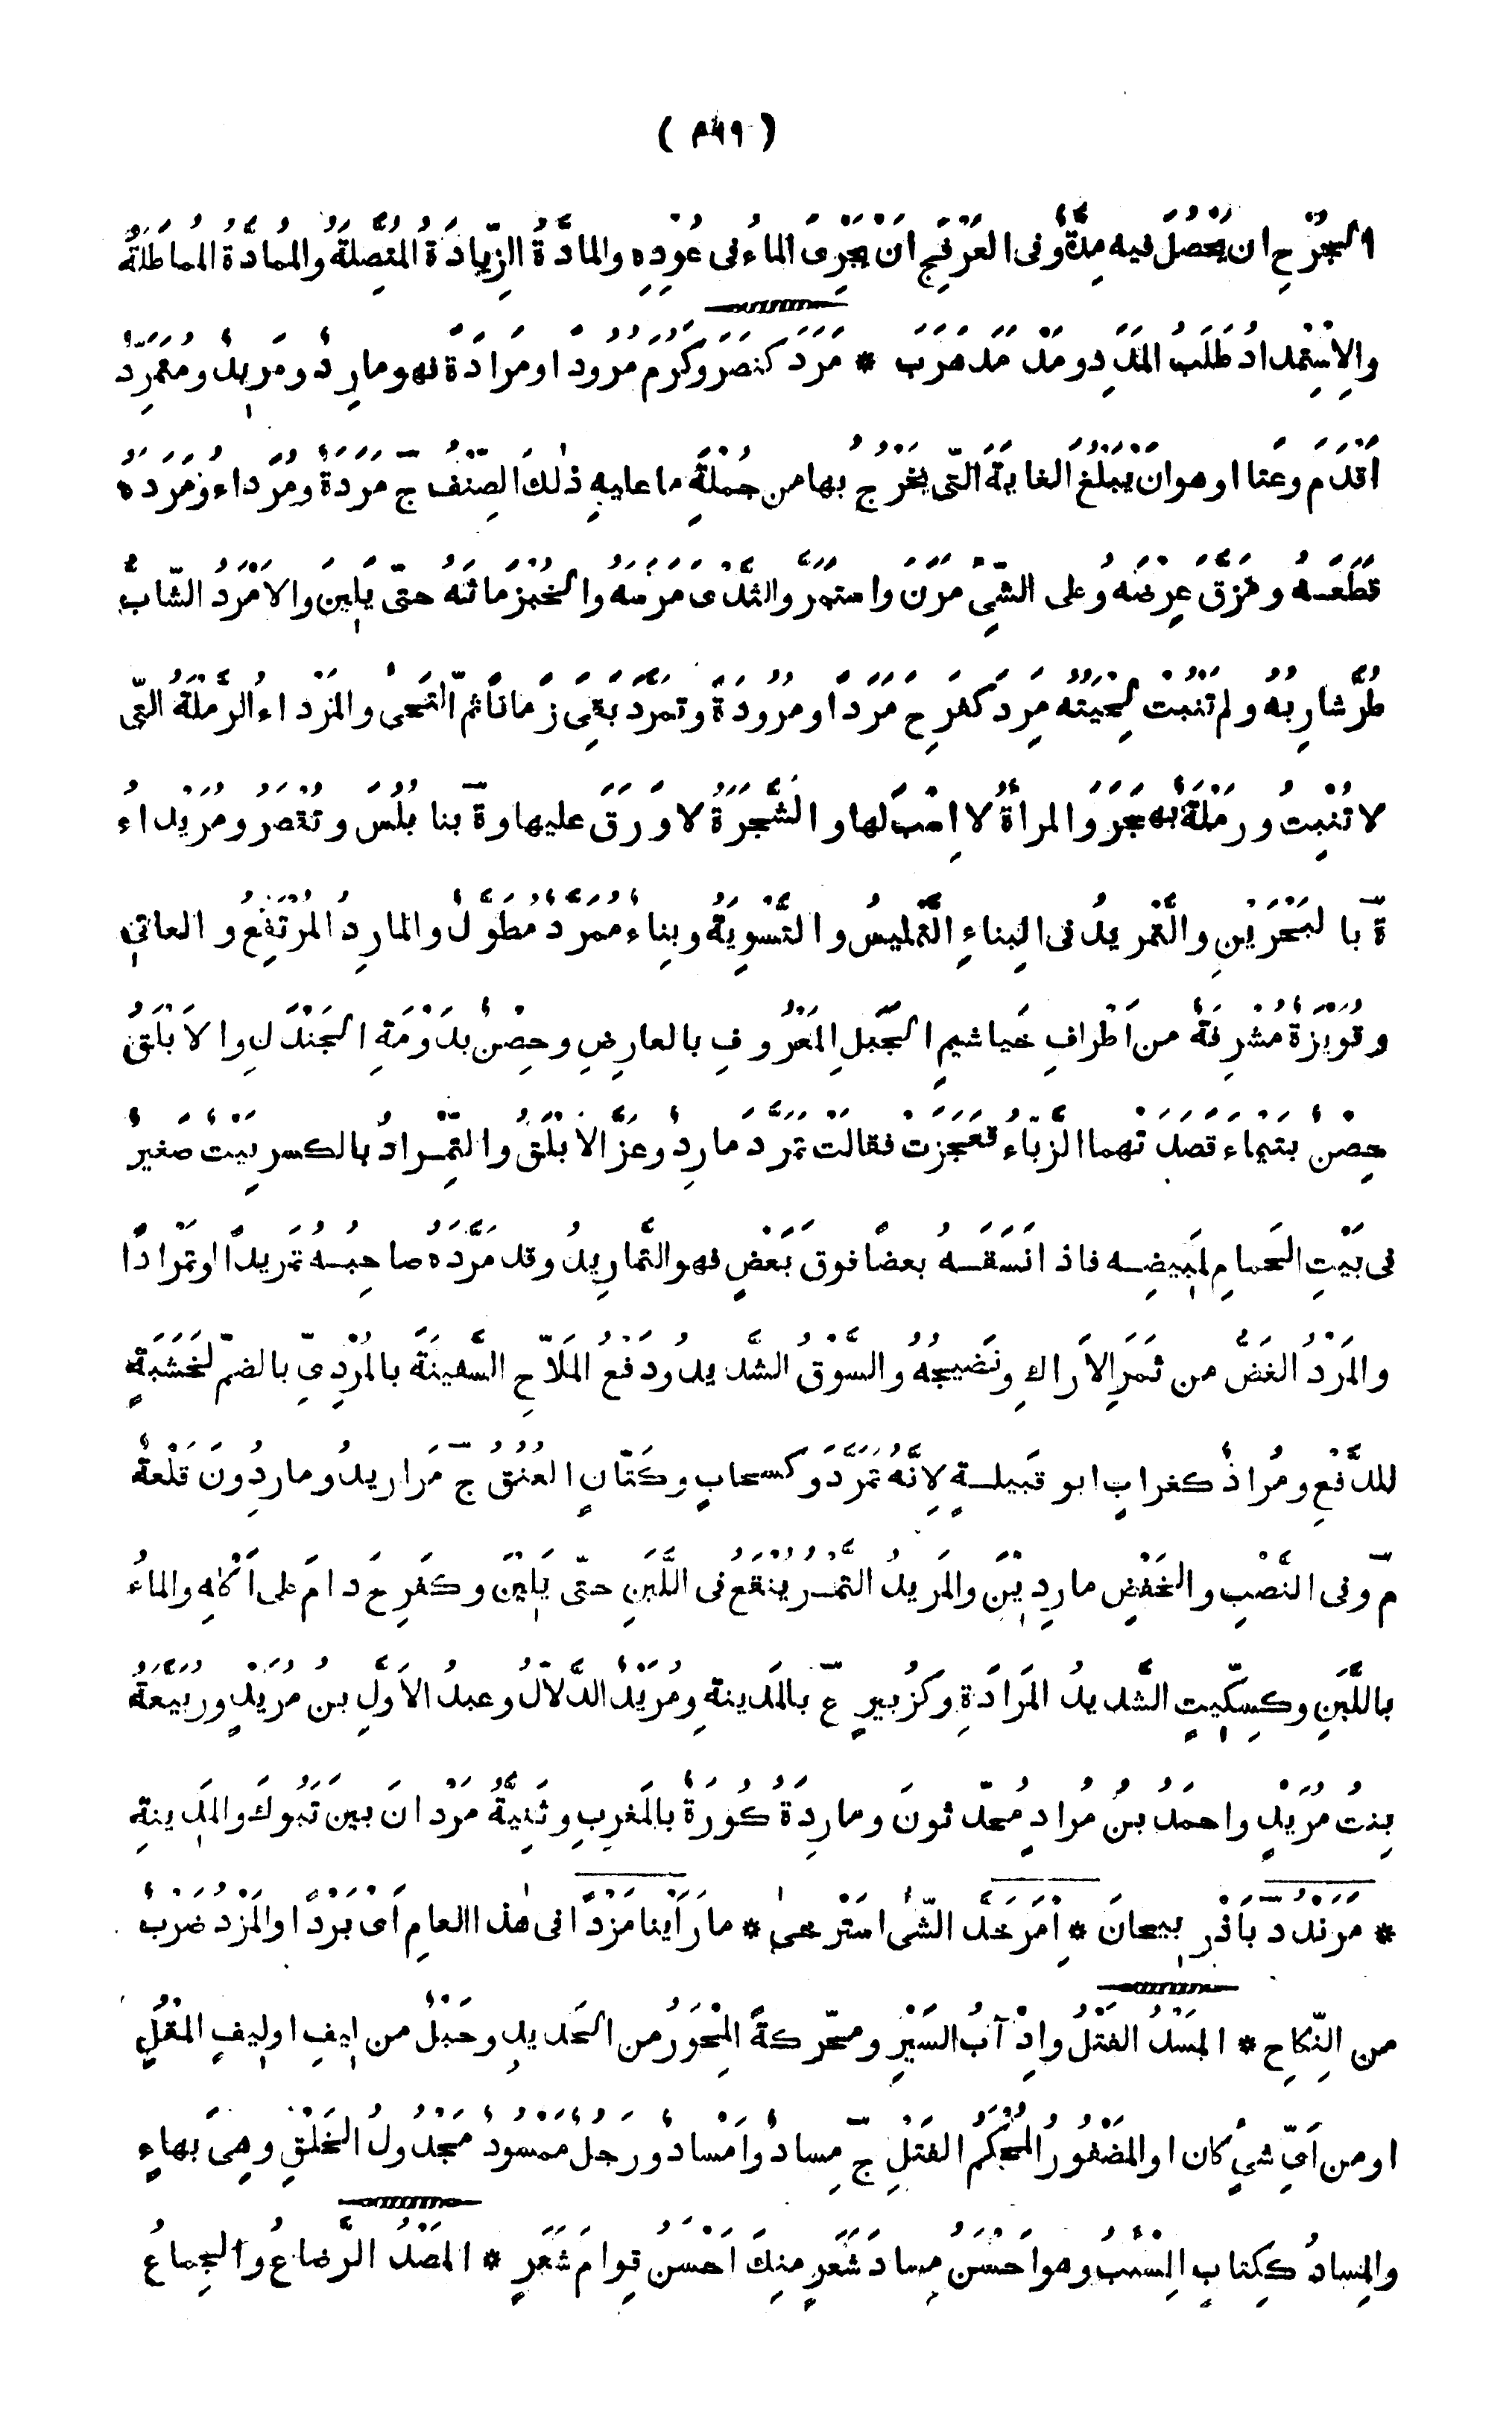 ( ٤٦٩ )
الجُرْحِ ان يَحْصُلَ فيه مِدَّةٌ وفى العَرْفَجِ اَنْ يَجْرِىَ الماءُ فى عُوْدِهِ والمادَّةُ الزِّيادَةُ المُتَّصِلَةُ والمُمادَّةُ المُماطَلَةُ
والاِسْتِمْدادُ طَلَبُ المَدَدِ ومَدْمَدَ هَرَبَ * مَرَدَ كنَصَرَ وكَرُمَ مُرُودًا ومَرادَةً فهو مارِدٌ ومَرِيدٌ ومُتَمَرِّدٌ
اَقْدَمَ وعَتا او هو ان يَبْلُغَ الغايَةَ التّى يَخْرُجُ بها من جُمْلَةِ ما عليهِ ذٰلكَ الصِّنْفُ ج مَرَدَةٌ ومُرَداءُ ومَرَدَهُ
قَطَعَهُ ومَزَّقَ عِرْضَهُ وعلى الشّىْءِ مَرَنَ واستمَرَّ والثَّدْىَ مَرَسَهُ والخُبْزَ ماثَهُ حتّى يَلِينَ والاَمْرَدُ الشّابُّ
طَرَّ شارِبُهُ ولم تَنْبُتْ لِحْيَتُهُ مَرِدَ كفَرِحَ مَرَدًا ومُرُودَةً وتَمَرَّدَ بَقِىَ زَمانًا ثم الْتَحَىٰ والمَرْداءُ الرَّمْلَةُ التّى
لا تُنْبِتُ ورَمْلَةٌ بهَجَرَ والمرأةُ لا اِسْبَ لها والشَّجَرَةُ لا وَرَقَ عليها وة بنابُلُسَ وتُقْصَرُ ومُرَيْداءُ
ة بالبَحْرَيْنِ والتَّمْرِيدُ فى البِناءِ التَّمْلِيسُ والتَّسْوِيَةُ وبِناءٌ مُمَرَّدٌ مُطَوَّلٌ والمارِدُ المُرْتَفِعُ والعاتِى
وقُوَيْرَةٌ مُشْرِفَةٌ من اَطْرافِ خَياشيمِ الجَبَلِ المَعْرُوفِ بالعارِضِ وحِصْنٌ بدَوْمَةِ الجَنْدَلِ والاَبْلَقُ
حِصْنٌ بتَيْماءَ قَصَدَتْهما الزَّبّاءُ فعَجَزَتْ فقالَتْ تَمَرَّدَ مارِدٌ وعَزَّ الاَبْلَقُ والتِّمْرادُ بالكسر بَيْتٌ صَغيرٌ
فى بَيْتِ الحَمامِ لمَبِيضِه فاذا نَسَقَهُ بعضًا فوقَ بَعْضٍ فهو التَّمارِيدُ وقد مَرَّدَهُ صاحِبُهُ تَمْرِيدًا وتَمْرادًا
والمَرْدُ الغَضُّ من ثَمَرِ الاَراكِ ونَضيجُهُ والسَّوْقُ الشَّدِيدُ ودَفْعُ المَلّاحِ السَّفِينَةَ بالمُرْدِىِّ بالضمّ لخَشَبَةٍ
للدَّفْعِ ومُرادٌ كغُرابٍ ابو قَبِيلَةٍ لاِنَّهُ تَمَرَّدَ وكسحابٍ وكَتّانٍ العُنُقُ ج مَرارِيدُ ومارِدُونَ قَلْعَةٌ
م وفى النَّصْبِ والخَفْضِ مارِدِيْنَ والمَرِيدُ التَّمْرُ يُنْقَعُ فى اللَّبَنِ حتّى يَلِيْنَ وكفَرِحَ دامَ على اَكْلِهِ والماءُ
باللَّبَنِ وكسِكِّيتٍ الشَّدِيدُ المَرادَةِ وكزُبيرٍ ع بالمَدِينَةِ ومُرَيْدٌ الدَّلّالُ وعبدُ الاَوَّلِ بن مُرَيْدٍ ورَبيعَةُ
بِنتُ مُرَيْدٍ واحمَدُ بنُ مُرادٍ مُحدّثونَ ومارِدَةُ كُورَةٌ بالمَغرِبِ وثَنِيَّةُ مَرْدانَ بينَ تَبُوكَ والمَدِينَةِ
* مَرَنْدُ د بأَذْرَبيجانَ * اِمْرَخَدَّ الشّىُ استَرْخىٰ * ما رَأَيْنا مَزْدًا فى هٰذا العامِ اَىْ بَرْدًا والمَزْدُ ضَرْبٌ
من النِّكاحِ * المَسْدُ الفَتْلُ واِدْآبُ السَّيْرِ ومحرّكةً المِحْوَرُ من الحَديدِ وحَبْلٌ من لِيفٍ او لِيفِ المُقْلِ
او من اَىِّ شىْءٍ كان او المَضْفُورُ المُحْكَمُ الفَتْلِ ج مِسادٌ واَمْسادٌ ورَجلٌ مَمْسُودٌ مَجْدُولُ الخَلْقِ وهِىَ بَهاءٍ
والمِسادُ ككِتابٍ المِسْأَبُ وهو اَحْسَنُ مِسادَ شَعَرٍ مِنكَ اَحْسَنُ قِوامَ شَعَرٍ * المَصْدُ الرَّضاعُ والجِماعُ